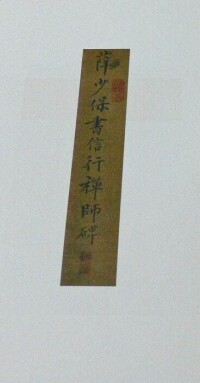 薛少保書信行禪師碑